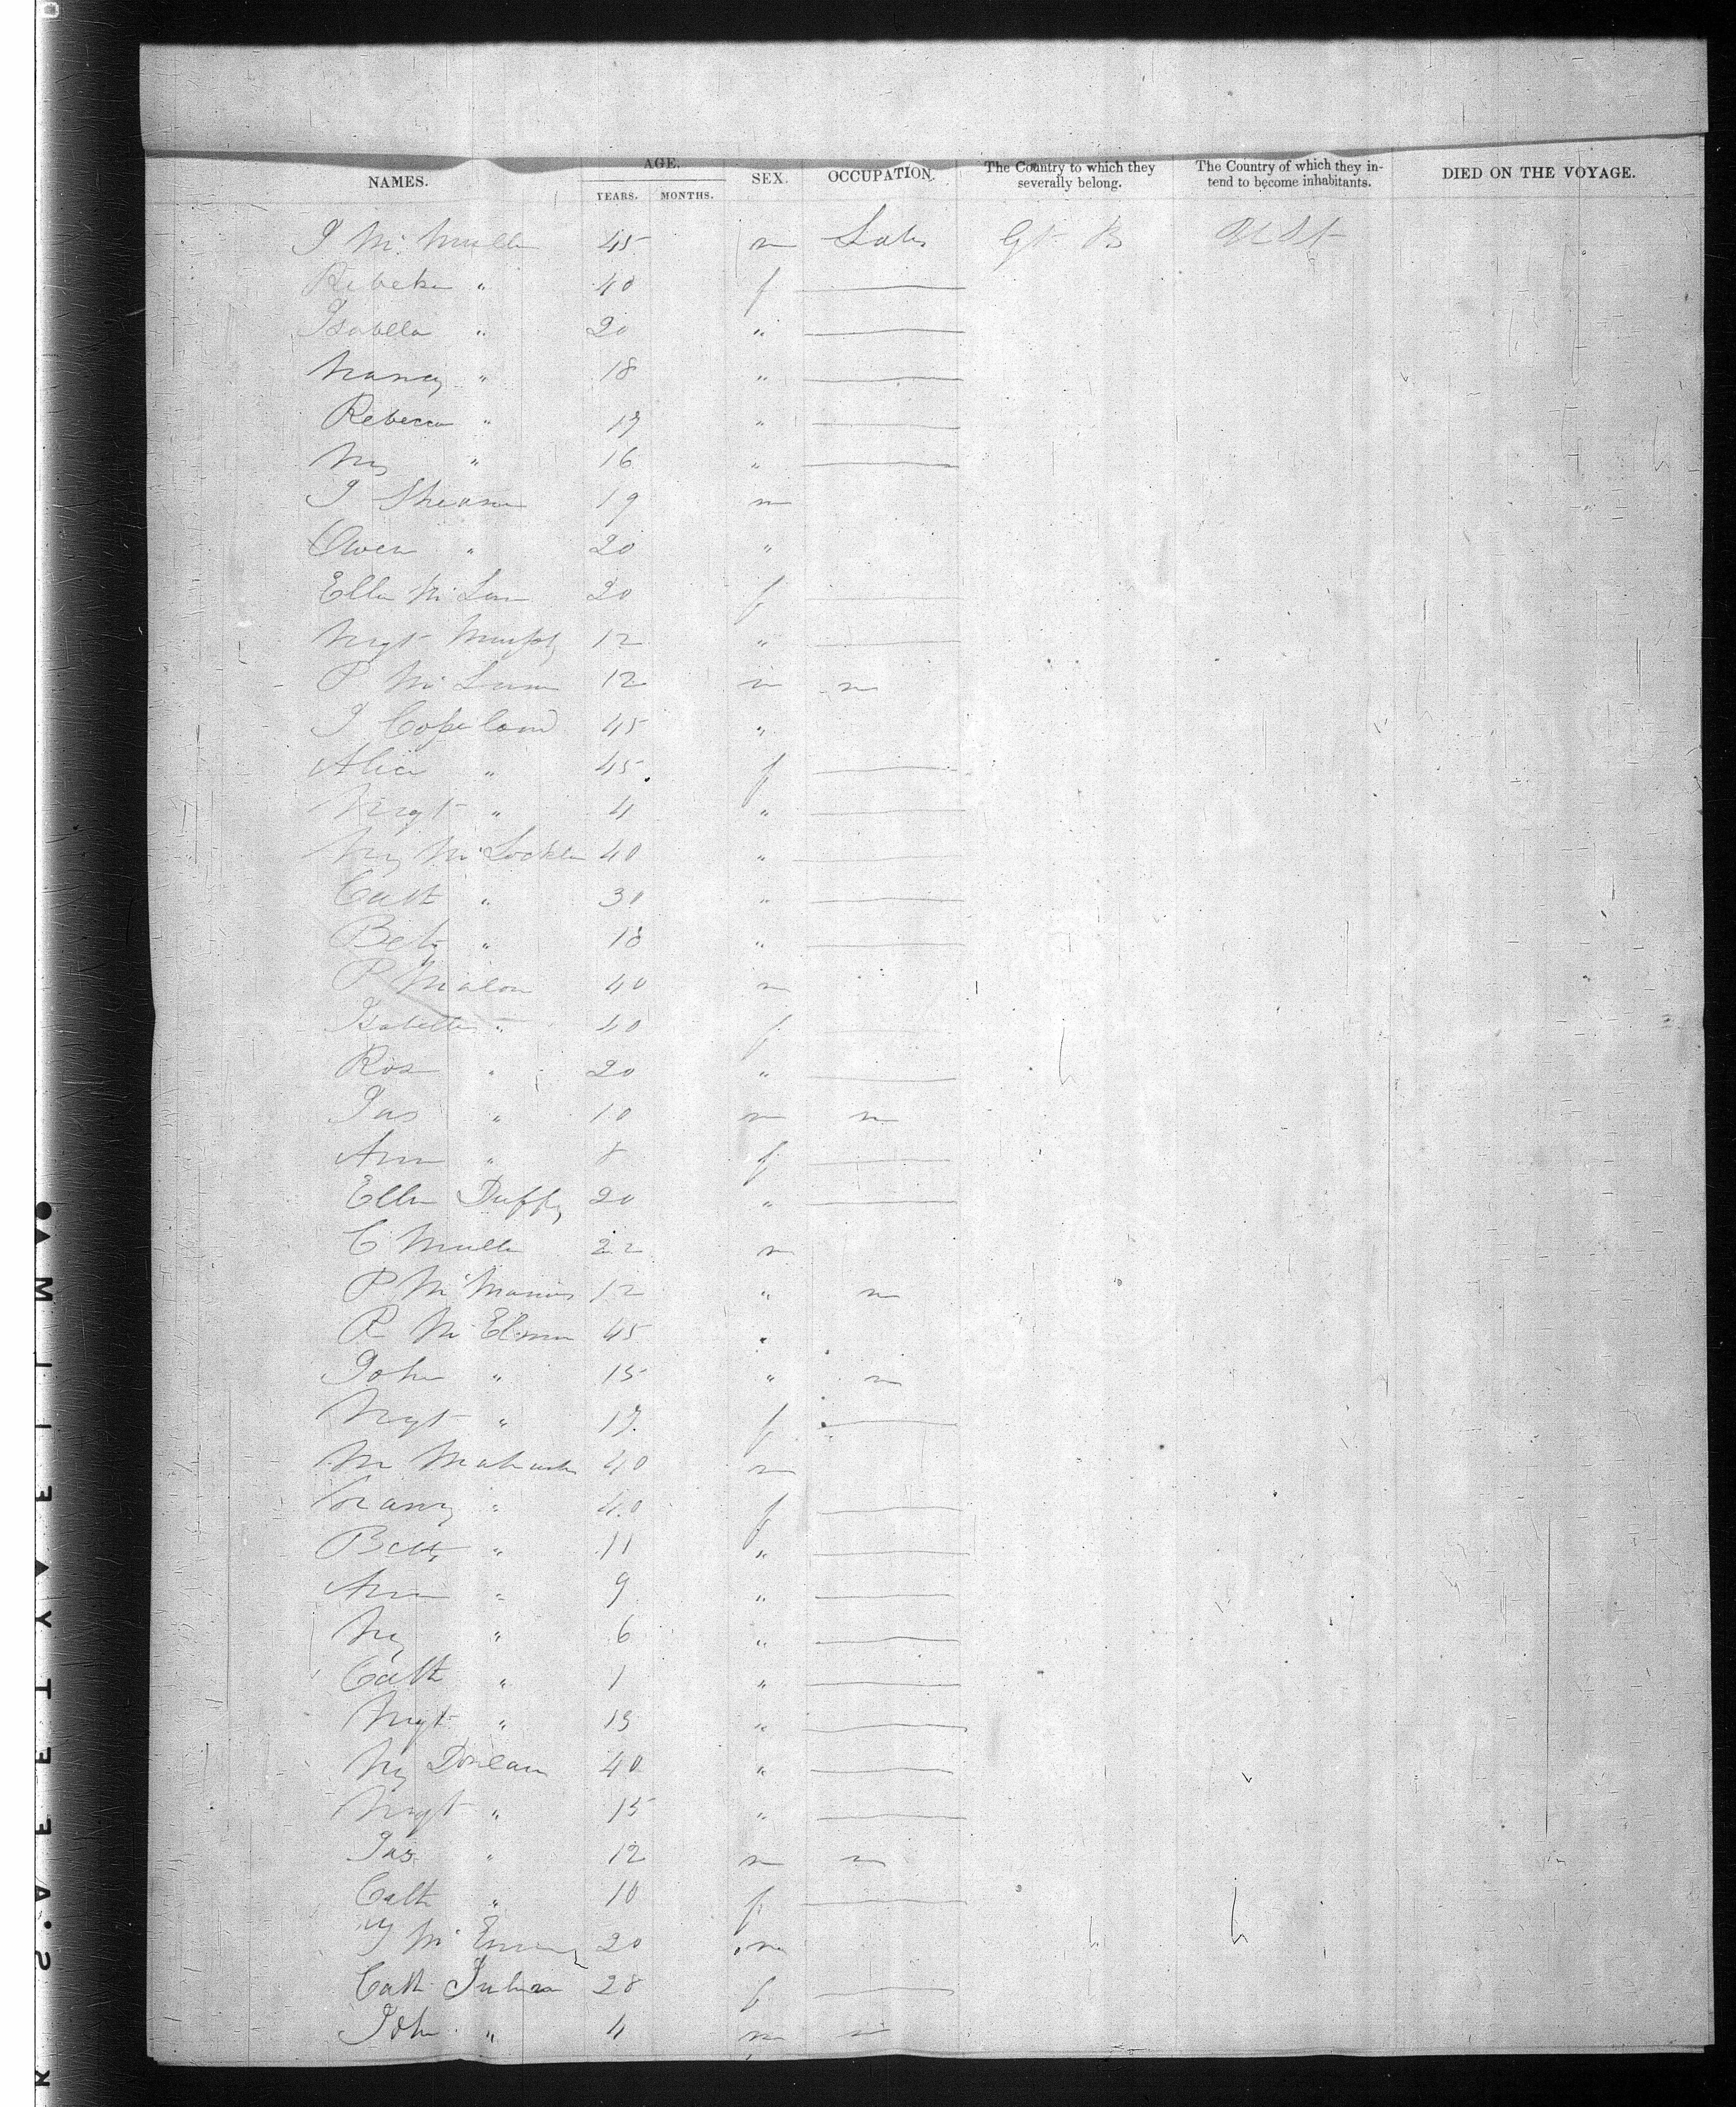 NAMES. AGE. YEARS. MONTHS. SEX. OCCUPATION. The Country to which they severally belong. The Country of which they intend to become inhabitants. DIED ON THE VOYAGE.
J McMullen 45 m Gt B U St
Rebeka " 40 f
Isabella " 20 "
Nancy " 18 "
Rebecca " 17 "
My " 16 "
19 m
Owen " 20 "
Ellen 20 f
Mrgt Murphy 12 "
P 12 m
J Copeland 45 "
Alice " 45 f
Mrgt " 4 "
My 40 "
Cath " 30 "
Bety " 18 "
P Malon 40 m
Isabella " 40 f
Ros " 20 "
Jas " 10 m
Ann " 8 f
Ellen Duffy 20 "
C Mullen 22 m
P McManus 12 "
R 45 "
John " 15 "
Mrgt " 17 f
40 m
Nancy " 40 f
Betty " 11 "
Ann " 9 "
My " 6 "
Cath " 1 "
Mrgt " 13 "
My 40 "
Mrgt " 15 "
Jas " 12 m
Cath " 10 f
20 m
Cath 28 f
John " 4 m